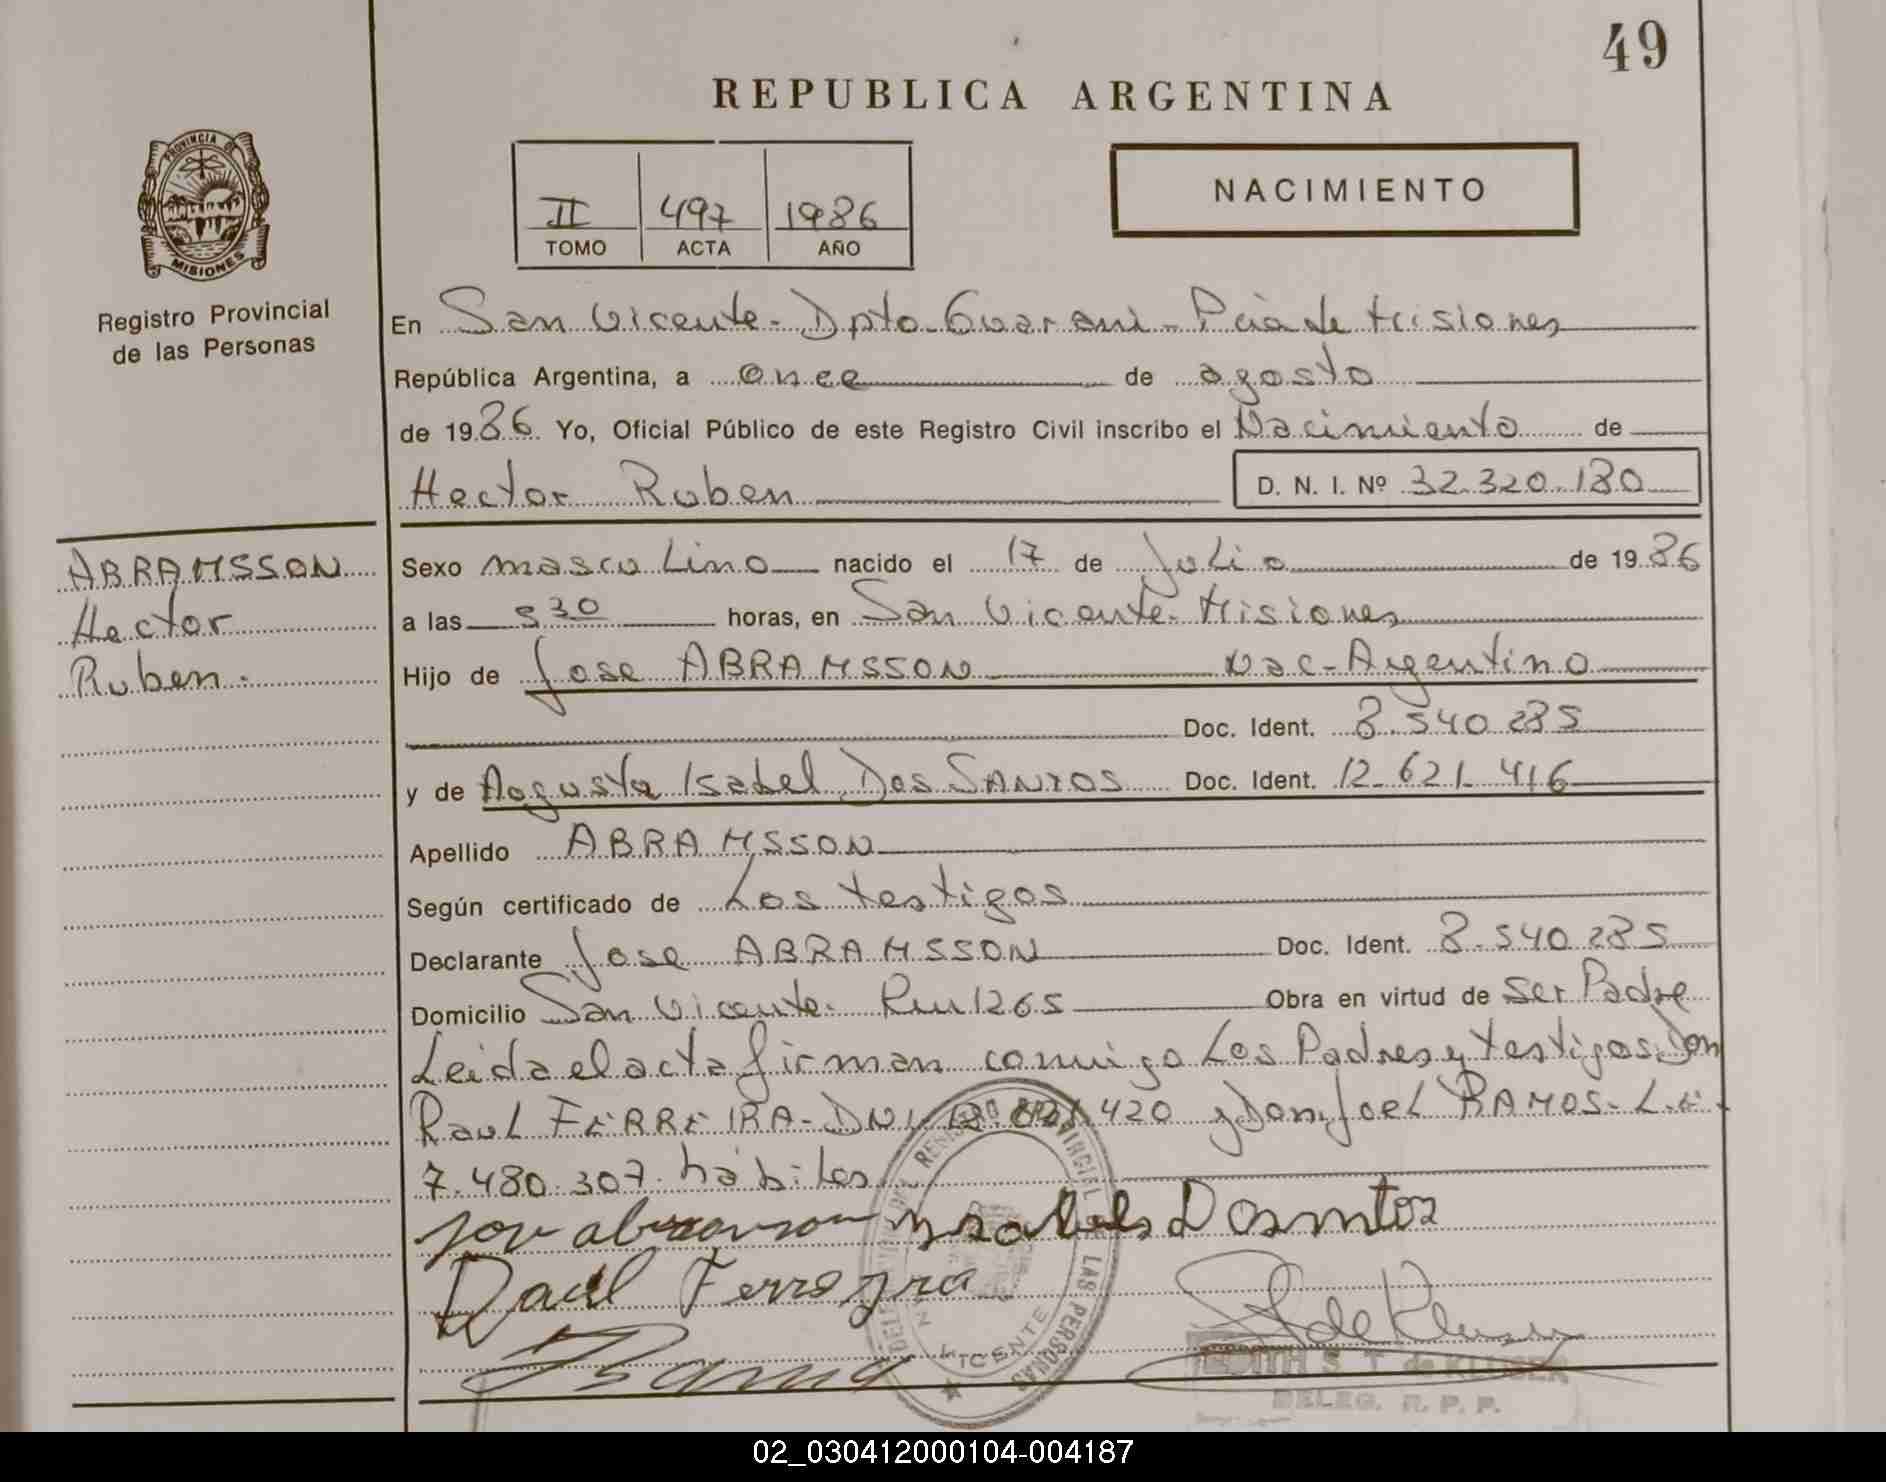 49
REPUBLICA ARGENTINA
PROVINCIA DE
MISIONES
Registro Provincial
de las Personas
II 497 1986
TOMO ACTA AÑO
NACIMIENTO
En San Vicente - Dpto Guarani - Pcia de Misiones
República Argentina, a once de agosto
de 1986 Yo, Oficial Público de este Registro Civil inscribo el Nacimiento de
Hector Ruben D. N. I. Nº 32.320.180
ABRAMSSON
Hector
Ruben.
Sexo masculino nacido el 17 de Julio de 1986
a las 530 horas, en San Vicente - Misiones
Hijo de Jose ABRAMSSON Nac - Argentino
Doc. Ident. 8.540.285
y de Augusta Isabel Dos SANTOS Doc. Ident. 12.621.416
Apellido ABRAMSSON
Según certificado de Los testigos
Declarante Jose ABRAMSSON Doc. Ident. 8.540.285
Domicilio San Vicente. Ru 1265 Obra en virtud de Ser Padre
Leida el acta firman conmigo Los Padres y testigos Don
Raul FERREIRA - DNI 420 y Don Joel RAMOS - L.E.
7.480.307. hábiles
DELEGACION DEL REGISTRO PROVINCIAL DE LAS PERSONAS
VICENTE
EDITH S. T. de KLUSER
DELEG. R. P. P.
02_030412000104-004187